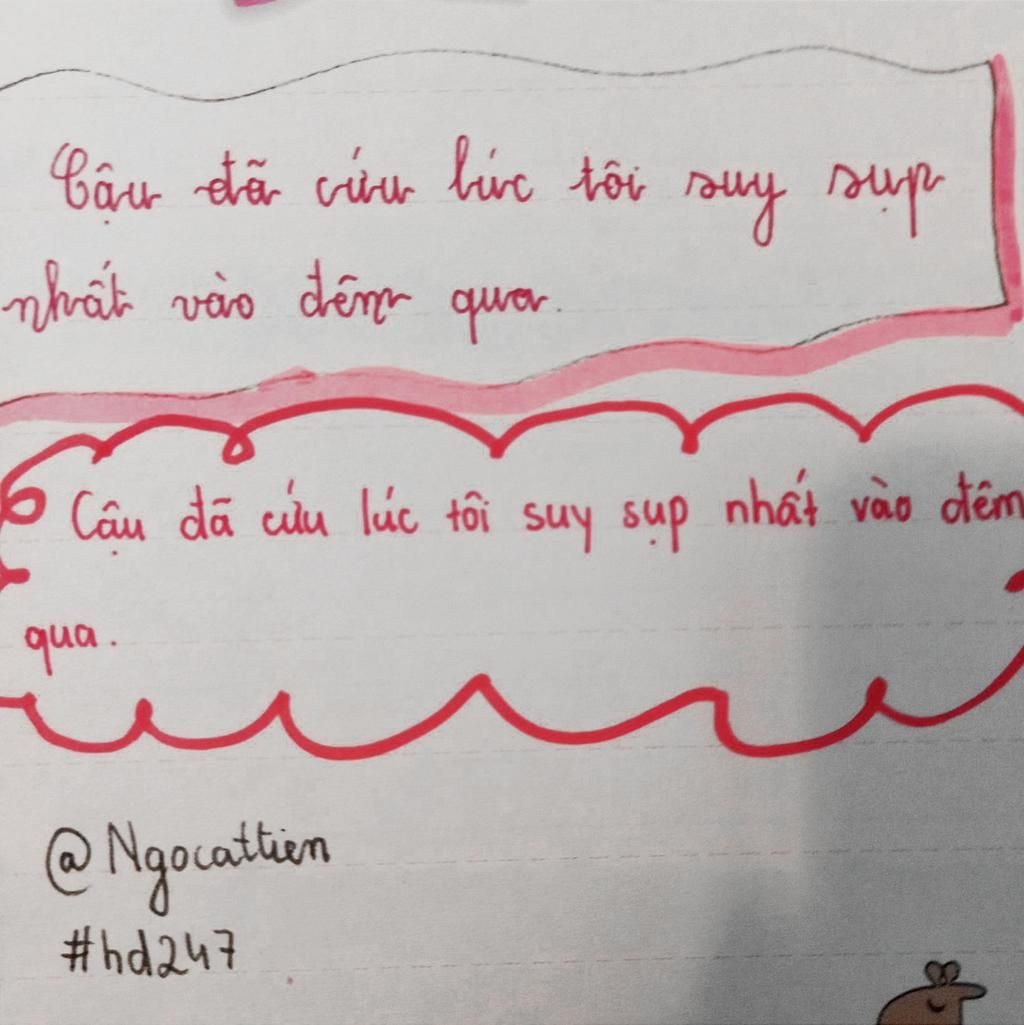 Cậu đã cứu lúc tôi suy sụp
nhất vào đêm qua.
Cậu đã cứu lúc tôi suy sụp nhất vào đêm
qua.
@Ngocattien
#hd247